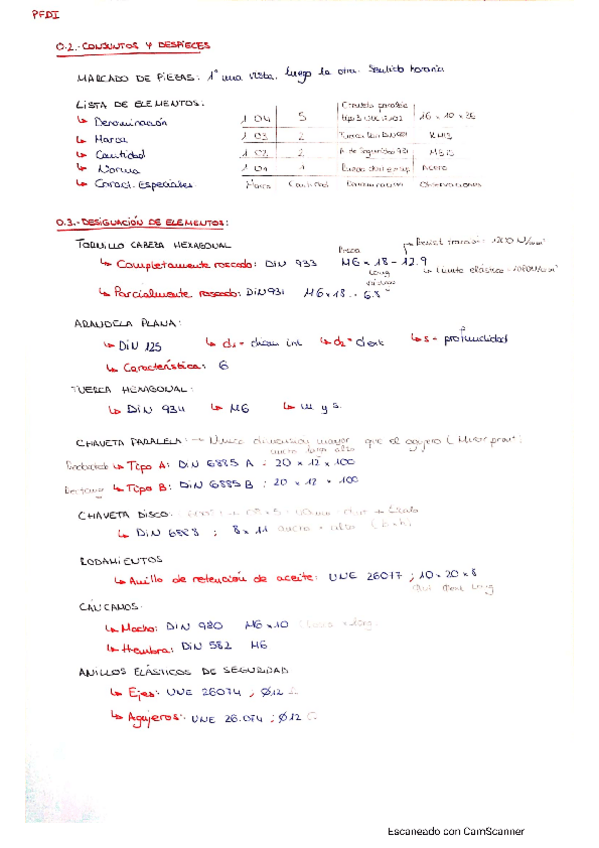 PFDI
0.2.- CONJUNTOS Y DESPIECES
MARCADO DE PIEZAS: 1º una vista, luego la otra. Sentido horario
LISTA DE ELEMENTOS:
↳ Denominación
↳ Marca
↳ Cantidad
↳ Norma
↳ Caract. Especiales
1 04 5 Chaveta paralela tipo B 16 x 10 x 20
1 03 2
1 02 2 A. de seguridad
1 01 1 Acero
Marca Cantidad Denominación Observaciones
0.3.- DESIGNACIÓN DE ELEMENTOS:
TORNILLO CABEZA HEXAGONAL
↳ Completamente roscado: DIN 933 M6 x 18 - 12.9
Rosca
Long
Límite elástico
↳ Parcialmente roscado: DIN 931 M6 x 18 - 6.8
ARANDELA PLANA:
↳ DIN 125 ↳ d1 = diam int ↳ d2 = d ext ↳ s = profundidad
↳ Característica: 6
TUERCA HEXAGONAL:
↳ DIN 934 ↳ M6 ↳ m y s.
CHAVETA PARALELA: → Nunca dimensión mayor que el agujero
ancho largo alto
↳ Tipo A: DIN 6885 A : 20 x 12 x 100
↳ Tipo B: DIN 6885 B : 20 x 12 x 100
CHAVETA DISCO:
↳ DIN 6888 ; 8 x 11 ancho x alto (b x h)
RODAMIENTOS
↳ Anillo de retención de aceite: UNE 26017 ; 10 x 20 x 8
Dint Dext Long
CÁNCAMOS:
↳ Macho: DIN 980 M6 x 10
↳ Hembra: DIN 582 M6
ANILLOS ELÁSTICOS DE SEGURIDAD
↳ Ejes: UNE 26074 ; Ø12
↳ Agujeros: UNE 26.074 ; Ø12
Escaneado con CamScanner